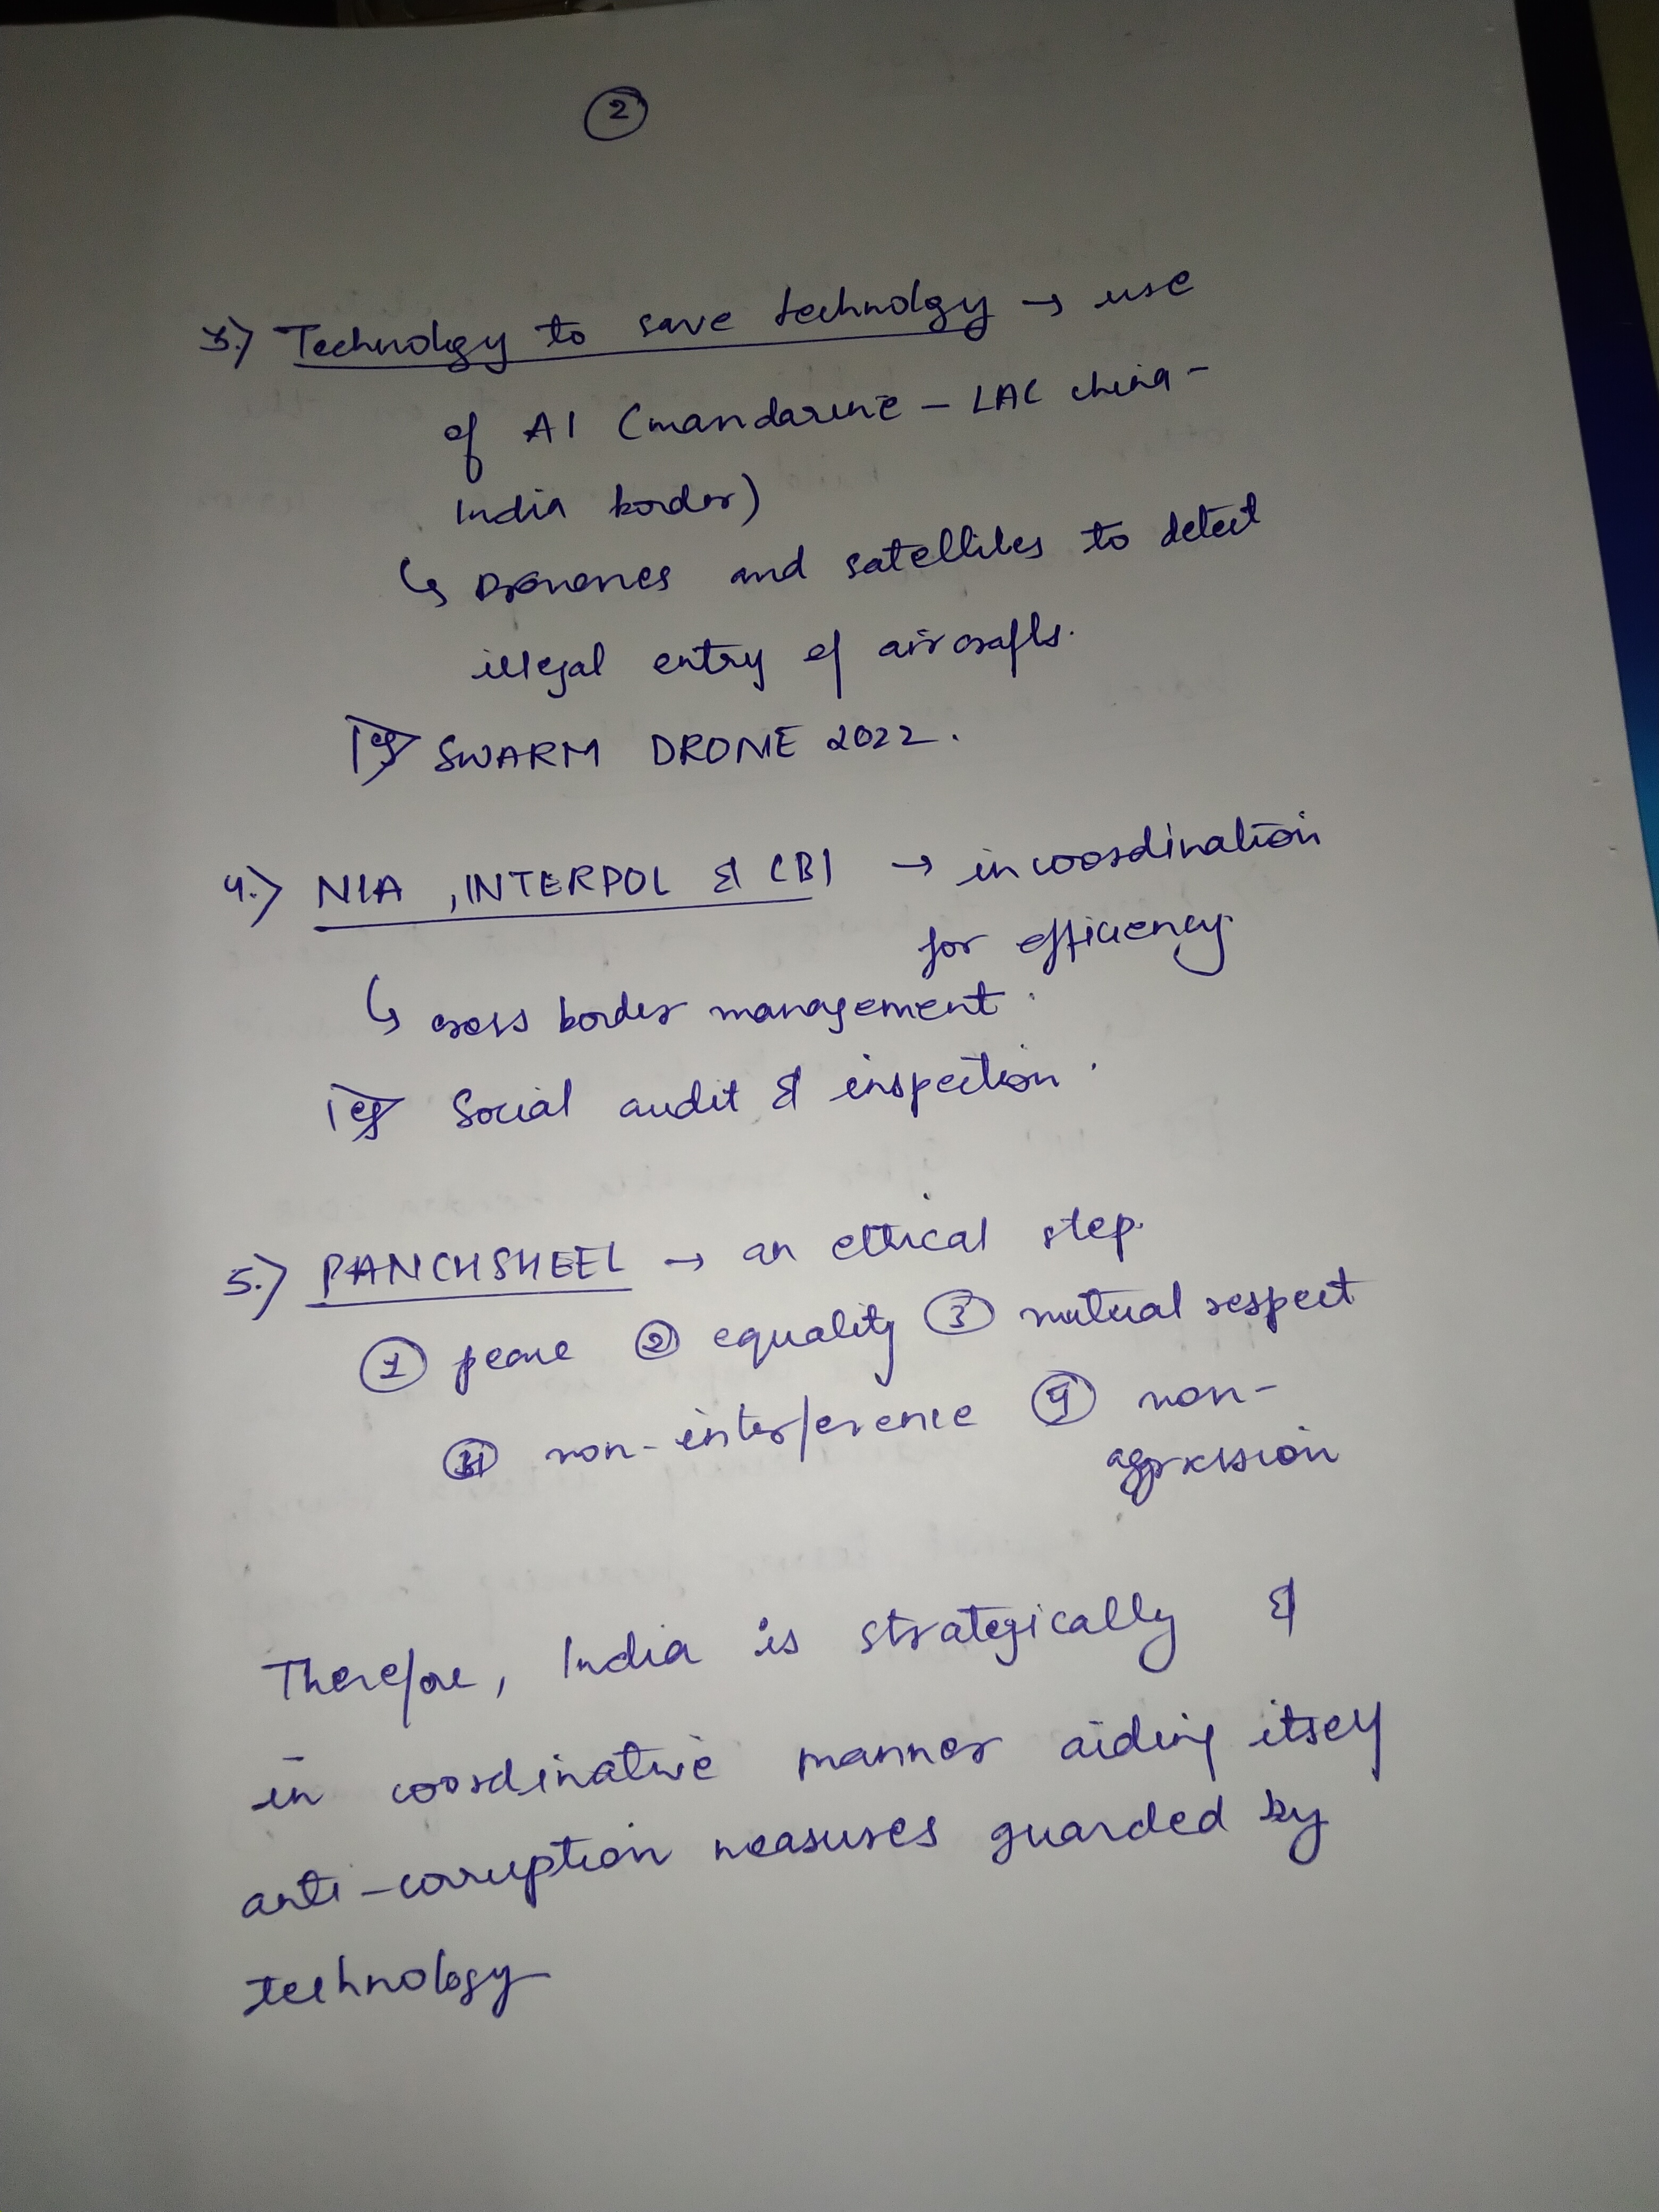 2
3.) Technology to save technolgy → use
of AI (mandarine - LAC china -
India border)
↳ Dronones and satellites to detect
illegal entry of aircrafts.
eg SWARM DRONE 2022.
4.) NIA, INTERPOL & CBI → in coordination
for efficiency.
↳ cross border management.
eg Social audit & inspection.
5.) PANCHSHEEL → an ethical step.
① peace ② equality ③ mutual respect
non-interference ④ non-
aggression
Therefore, India is strategically &
in coordinative manner aiding itself
anti-corruption measures guarded by
technology